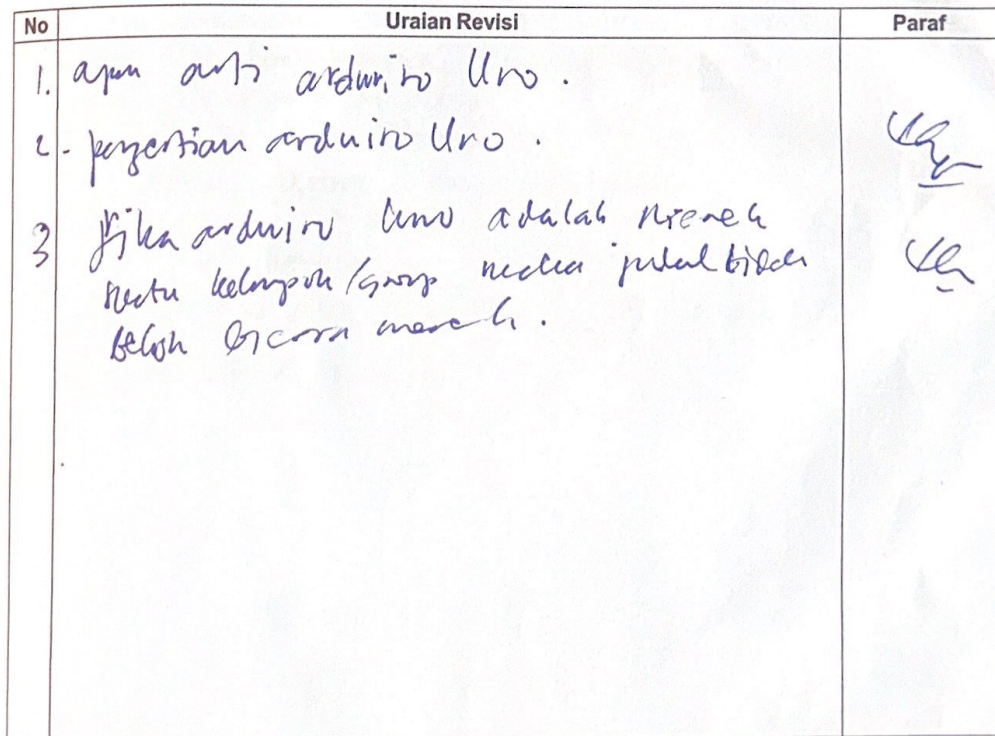 No Uraian Revisi Paraf
1. apa arti arduino Uno.
2. pengertian arduino Uno.
3 Jika arduino Uno adalah merek
kelompok/group maka judul tidak
boleh